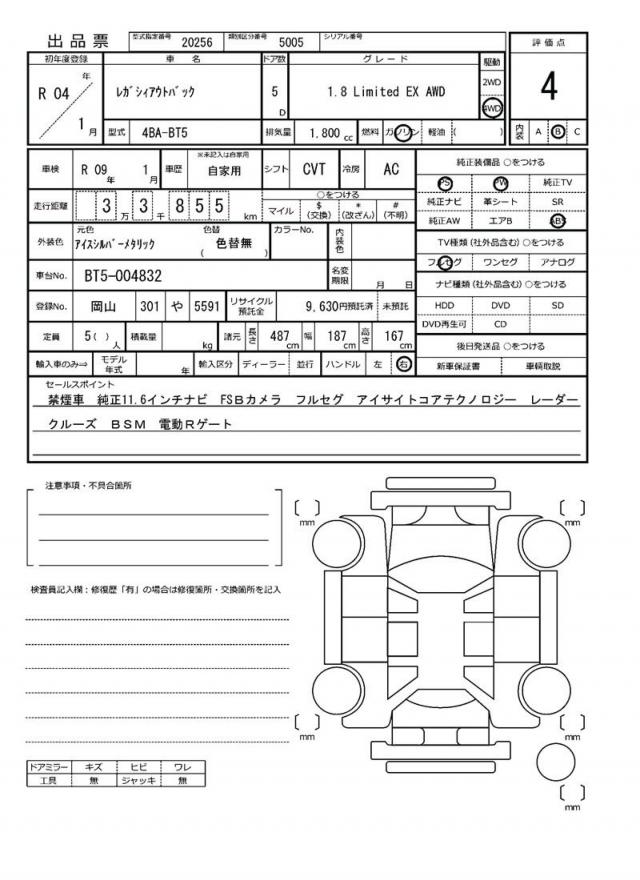 出品票 型式指定番号 20256 類別区分番号 5005 シリアル番号
評価点
4
初年度登録 車名 ドア数 グレード 駆動
R 04 年 1 月 ﾚｶﾞｼｨｱｳﾄﾊﾞｯｸ 5 D 1.8 Limited EX AWD 2WD 4WD
型式 4BA-BT5 排気量 1.800 cc 燃料 ガソリン 軽油 ( ) 内装 A B C
車検 R 09 年 1 月 車歴 ※未記入は自家用 自家用 シフト CVT 冷房 AC
走行距離 3 万 3 千 8 5 5 km ○をつける マイル $ (交換) * (改ざん) # (不明)
外装色 元色 ｱｲｽｼﾙﾊﾞｰﾒﾀﾘｯｸ 色替 ( 色替無 ) カラーNo. 内装色
車台No. BT5-004832 名変期限 月 日
登録No. 岡山 301 や 5591 リサイクル預託金 9,630円預託済 未預託
定員 5 ( ) 人 積載量 kg 諸元 長さ 487 cm 幅 187 cm 高さ 167 cm
輸入車のみ⇒ モデル年式 年 輸入区分 ディーラー 並行 ハンドル 左 右
純正装備品 ○をつける
PS PW 純正TV
純正ナビ 革シート SR
純正AW エアB ABS
TV種類 (社外品含む) ○をつける
フルセグ ワンセグ アナログ
ナビ種類 (社外品含む) ○をつける
HDD DVD SD
DVD再生可 CD
後日発送品 ○をつける
新車保証書 車輌取説
セールスポイント
禁煙車 純正11.6インチナビ FSBカメラ フルセグ アイサイトコアテクノロジー レーダー
クルーズ BSM 電動Rゲート
注意事項・不具合箇所
検査員記入欄：修復歴「有」の場合は修復箇所・交換箇所を記入
ドアミラー キズ ヒビ ワレ
工具 無 ジャッキ 無
〔 〕 mm
〔 〕 mm
〔 〕 mm
〔 〕 mm
〔 〕 mm